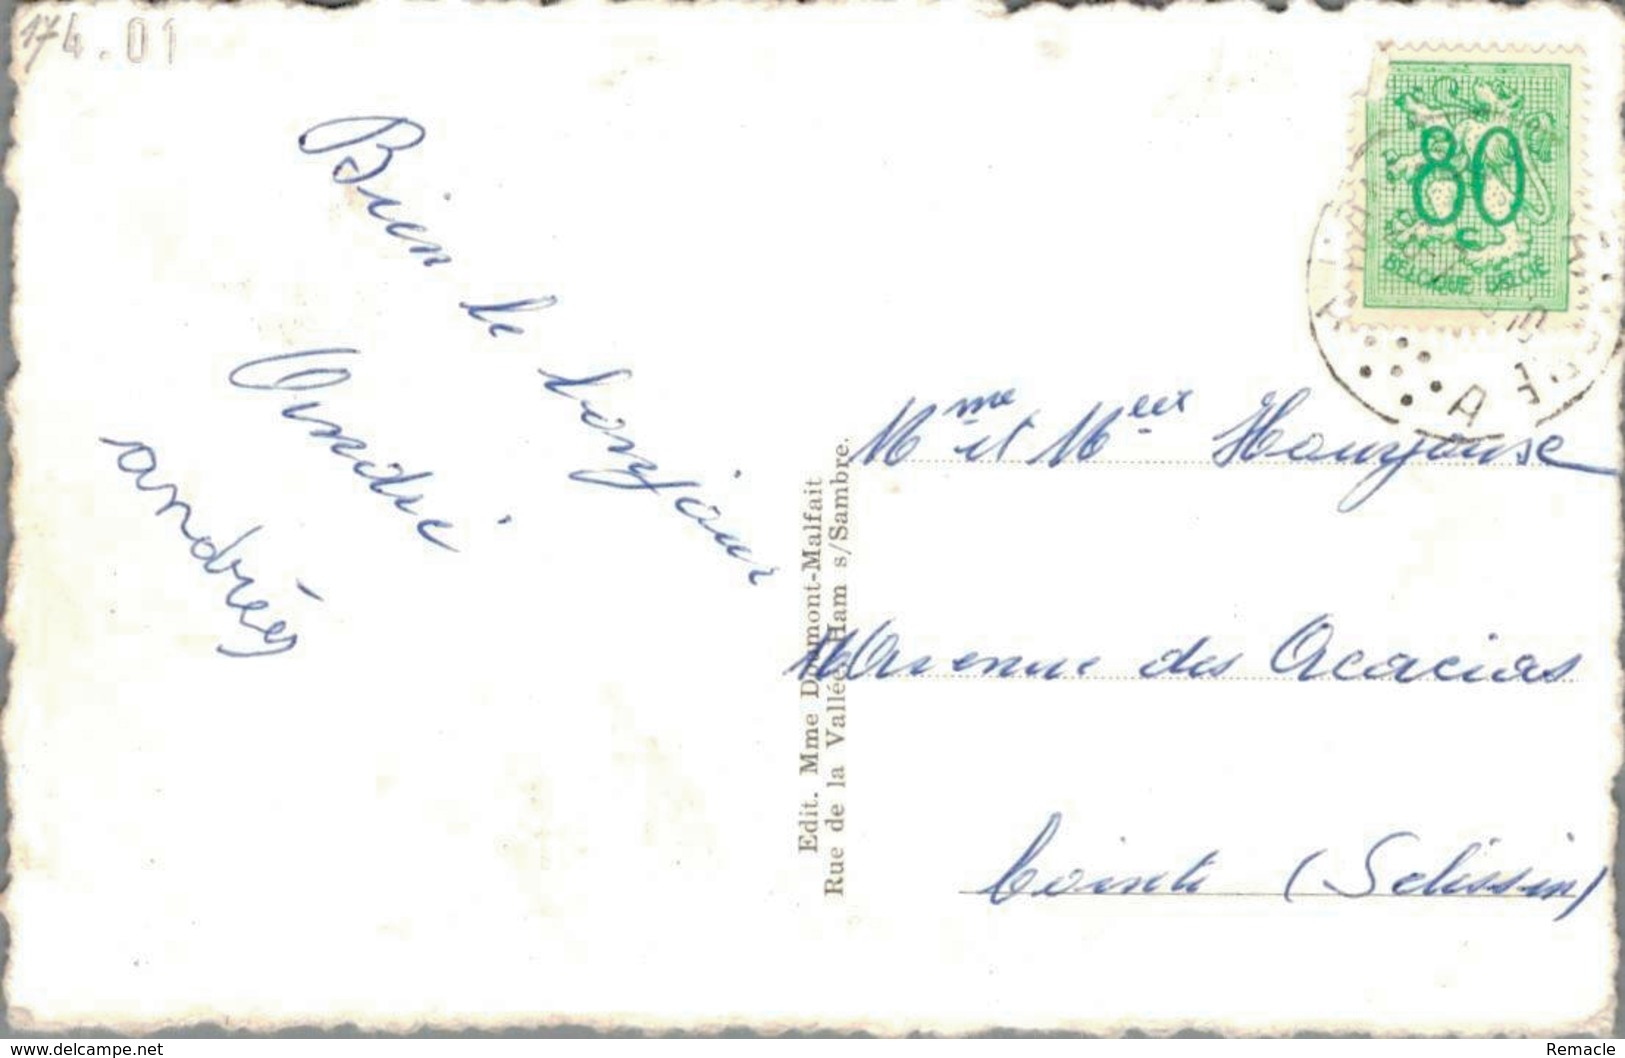 174.01
Bien le bonjour
André
andrée
80
BELGIQUE BELGIË
Edit. Mme Dumont-Malfait
Rue de la Vallée Ham s/Sambre.
Mme et Mr
Avenue des Acacias
Cointe (Sclessin)
www.delcampe.net
Remacle